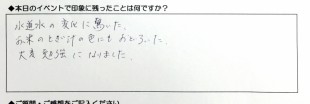 ◆本日のイベントで印象に残ったことは何ですか?
水道水の変化に驚いた。
お米のとぎ汁の色にもおどろいた。
大変勉強になりました。
◆ご質問・ご感想をご記入ください